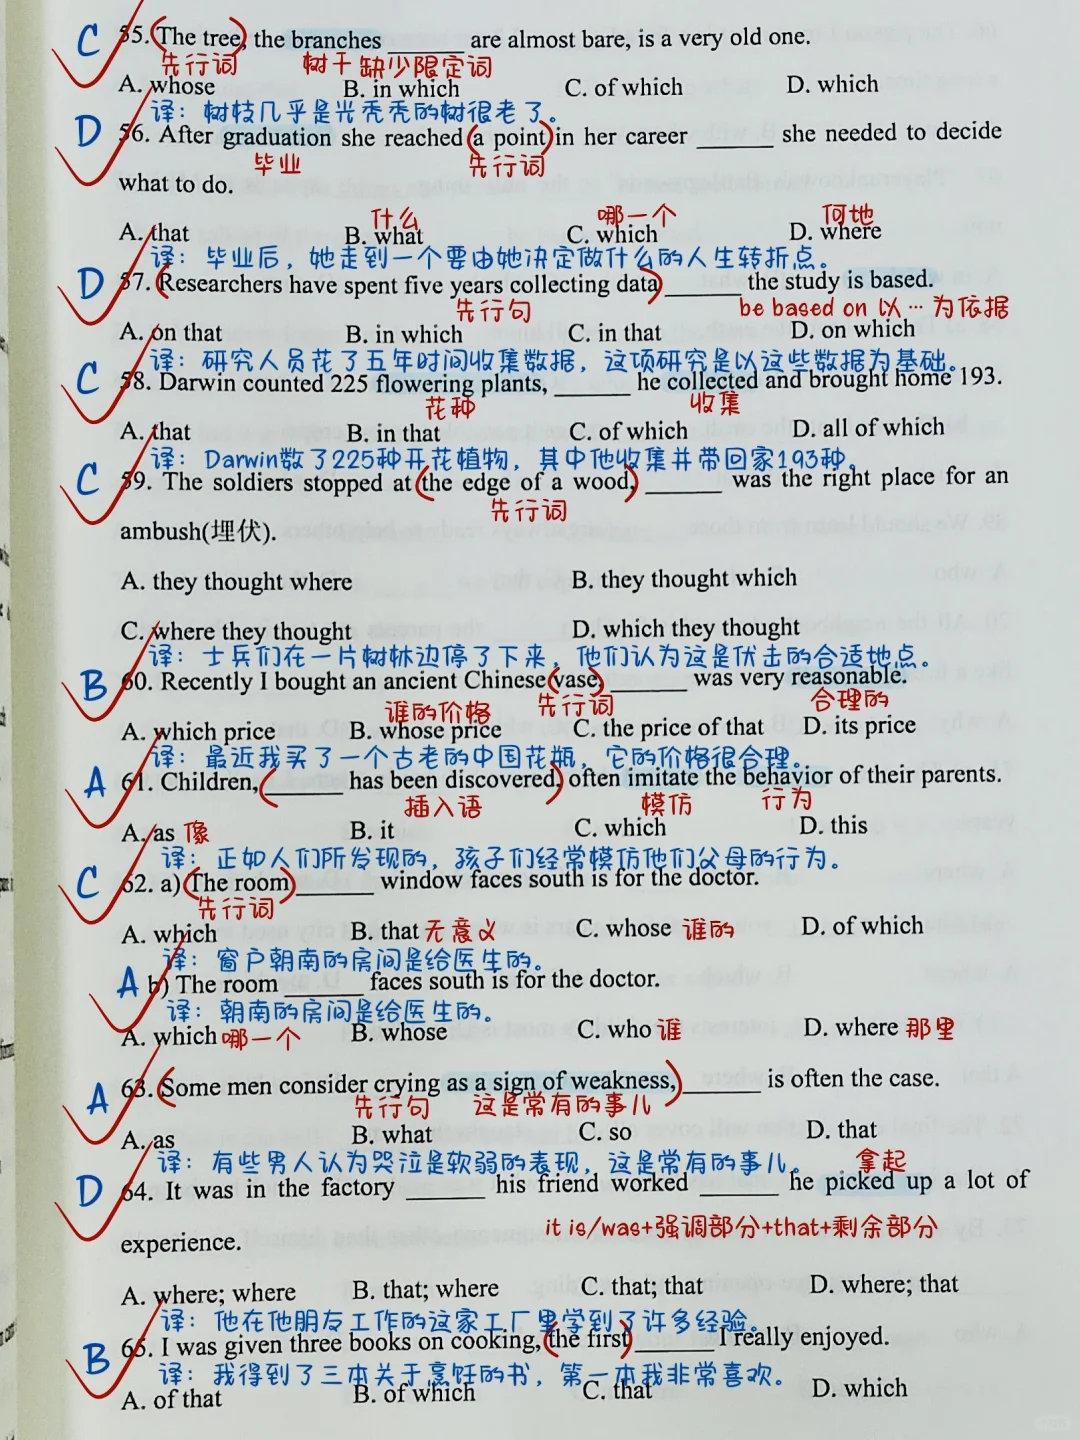 C 55. The tree, the branches ______ are almost bare, is a very old one.
先行词 树干 缺少限定词
A. whose B. in which C. of which D. which
译：树枝几乎是光秃秃的树很老了。
D 56. After graduation she reached a point in her career ______ she needed to decide
毕业 先行词
what to do.
什么 哪一个 何地
A. that B. what C. which D. where
译：毕业后，她走到一个要由她决定做什么的人生转折点。
D 57. Researchers have spent five years collecting data ______ the study is based.
先行句 be based on 以…为依据
A. on that B. in which C. in that D. on which
译：研究人员花了五年时间收集数据，这项研究是以这些数据为基础。
C 58. Darwin counted 225 flowering plants, ______ he collected and brought home 193.
花种 收集
A. that B. in that C. of which D. all of which
译：Darwin数了225种开花植物，其中他收集并带回家193种。
C 59. The soldiers stopped at the edge of a wood, ______ was the right place for an
先行词
ambush(埋伏).
A. they thought where B. they thought which
C. where they thought D. which they thought
译：士兵们在一片树林边停了下来，他们认为这是伏击的合适地点。
B 60. Recently I bought an ancient Chinese vase, ______ was very reasonable.
谁的价格 先行词 合理的
A. which price B. whose price C. the price of that D. its price
译：最近我买了一个古老的中国花瓶，它的价格很合理。
A 61. Children, ______ has been discovered, often imitate the behavior of their parents.
插入语 模仿 行为
A. as 像 B. it C. which D. this
译：正如人们所发现的，孩子们经常模仿他们父母的行为。
C 62. a) The room ______ window faces south is for the doctor.
先行词
A. which B. that 无意义 C. whose 谁的 D. of which
译：窗户朝南的房间是给医生的。
A b) The room ______ faces south is for the doctor.
译：朝南的房间是给医生的。
A. which 哪一个 B. whose C. who 谁 D. where 那里
A 63. Some men consider crying as a sign of weakness, ______ is often the case.
先行句 这是常有的事儿
A. as B. what C. so D. that
译：有些男人认为哭泣是软弱的表现，这是常有的事儿。 拿起
D 64. It was in the factory ______ his friend worked ______ he picked up a lot of
it is/was+强调部分+that+剩余部分
experience.
A. where; where B. that; where C. that; that D. where; that
译：他在他朋友工作的这家工厂里学到了许多经验。
B 65. I was given three books on cooking, the first ______ I really enjoyed.
译：我得到了三本关于烹饪的书，第一本我非常喜欢。
A. of that B. of which C. that D. which